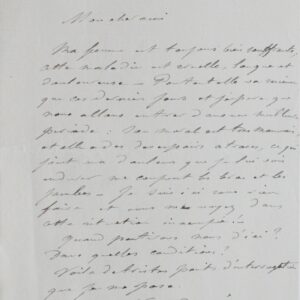 Mon cher ami
Ma femme est toujours très souffrante,
cette maladie est cruelle, longue et
douloureuse — Pourtant elle va mieux
que ces derniers jours et j'espère que
nous allons entrer dans une meilleure
période : Son moral est très mauvais
et elle a des desespoirs atroces, ce qui
joint aux douleurs que je lui vois
endurer me coupent les bras et les
jambes — Je suis ici sans rien
faire et vous me voyez dans
cette situation
Quand partirons nous d'ici ?
Dans quelles conditions ?
Voilà de tristes points d'interrogation
que je me pose.